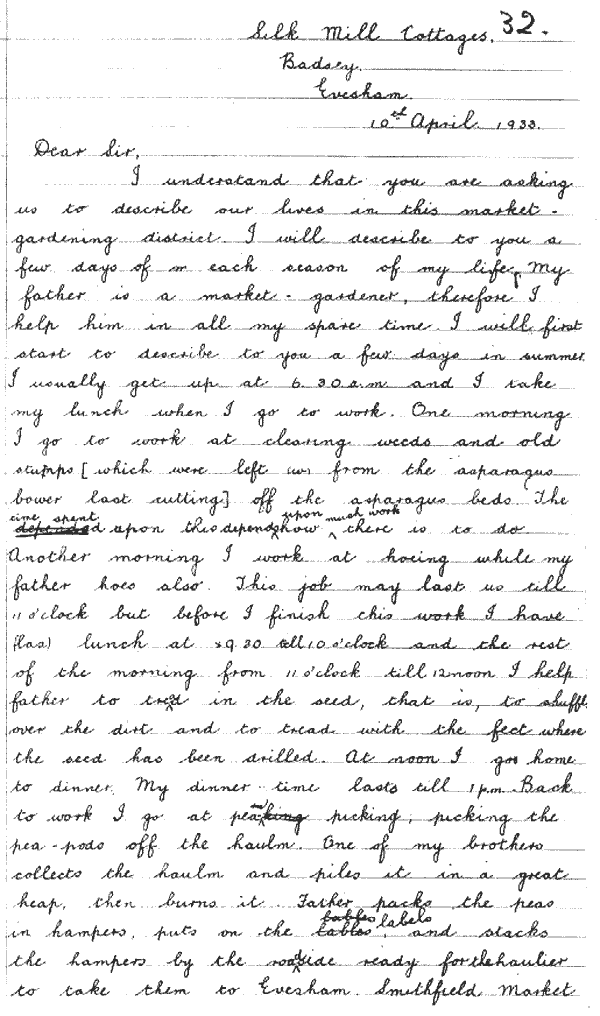 32.
Silk Mill Cottages,
Badsey.
Evesham.
10th April. 1933.
Dear Sir,
I understand that you are asking
us to describe our lives in this market-
gardening district. I will describe to you a
few days of in each season of my life. My
father is a market-gardener, therefore I
help him in all my spare time. I will first
start to describe to you a few days in summer.
I usually get up at 6.30 a.m. and I take
my lunch when I go to work. One morning
I go to work at clearing weeds and old
stumps [which were left from the asparagus
bower last cutting] off the asparagus beds. The
time spent upon much work
depended upon this depends how there is to do
Another morning I work at hoeing while my
father hoes also. This job may last us till
11 o'clock but before I finish this work I have
lunch at 9.30 till 10 o'clock and the rest
of the morning from 11 o'clock till 12 noon I help
father to tread in the seed, that is, to shuffle
over the dirt and to tread with the feet where
the seed has been drilled. At noon I go home
to dinner. My dinner-time lasts till 1 p.m. Back
to work I go at pea picking; picking the
pea-pods off the haulm. One of my brothers
collects the haulm and piles it in a great
heap, then burns it. Father packs the peas
lables labels
in hampers, puts on the tables, and stacks
the hampers by the roadside ready for the haulier
to take them to Evesham Smithfield Market